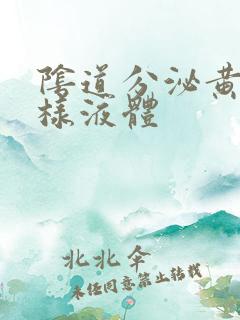 陰道分泌黃
樣液體
北北傘
未经同意禁止转载